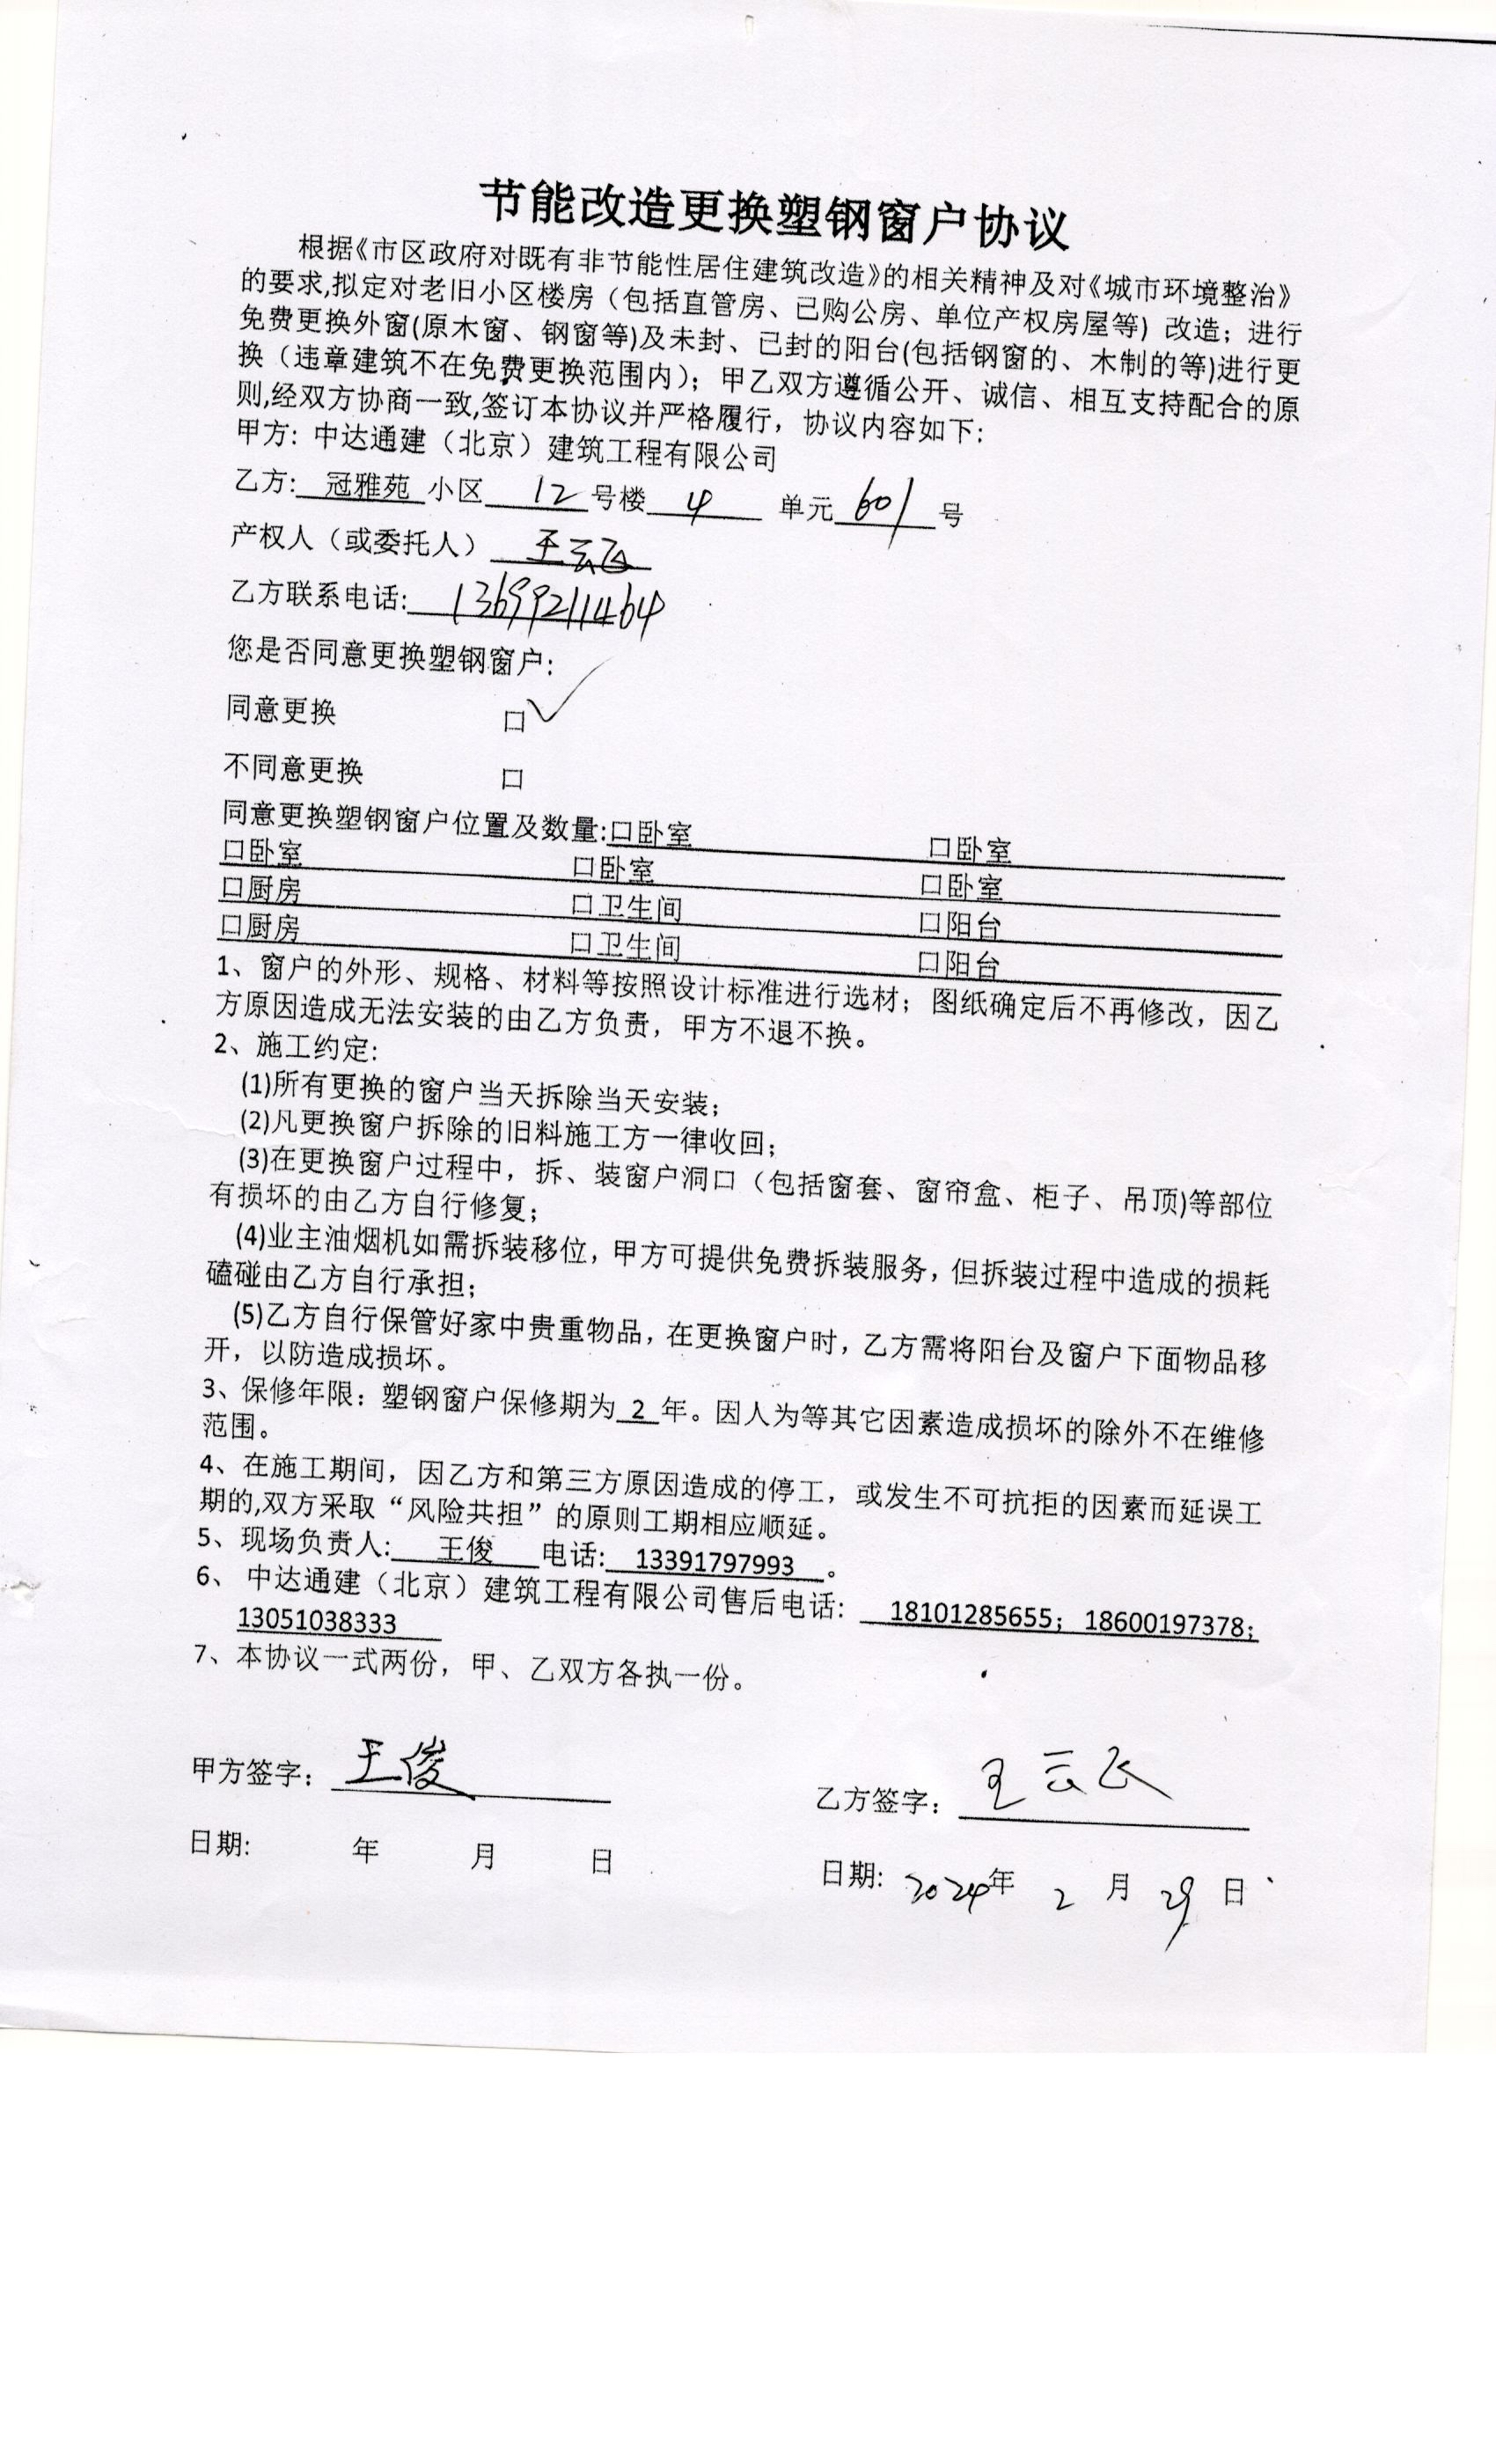 节能改造更换塑钢窗户协议
根据《市区政府对既有非节能性居住建筑改造》的相关精神及对《城市环境整治》
的要求,拟定对老旧小区楼房（包括直管房、已购公房、单位产权房屋等）改造；进行
免费更换外窗(原木窗、钢窗等)及未封、已封的阳台(包括钢窗的、木制的等)进行更
换（违章建筑不在免费更换范围内）；甲乙双方遵循公开、诚信、相互支持配合的原
则,经双方协商一致,签订本协议并严格履行，协议内容如下：
甲方：中达通建（北京）建筑工程有限公司
乙方: 冠雅苑 小区 12 号楼 4 单元 601 号
产权人（或委托人） 王云飞
乙方联系电话: 13699211464
您是否同意更换塑钢窗户：
同意更换 口✓
不同意更换 口
同意更换塑钢窗户位置及数量:口卧室 口卧室
口卧室 口卧室 口卧室
口厨房 口卫生间 口阳台
口厨房 口卫生间 口阳台
1、窗户的外形、规格、材料等按照设计标准进行选材；图纸确定后不再修改，因乙
方原因造成无法安装的由乙方负责，甲方不退不换。
2、施工约定:
(1)所有更换的窗户当天拆除当天安装；
(2)凡更换窗户拆除的旧料施工方一律收回；
(3)在更换窗户过程中，拆、装窗户洞口（包括窗套、窗帘盒、柜子、吊顶)等部位
有损坏的由乙方自行修复；
(4)业主油烟机如需拆装移位，甲方可提供免费拆装服务，但拆装过程中造成的损耗
磕碰由乙方自行承担；
(5)乙方自行保管好家中贵重物品，在更换窗户时，乙方需将阳台及窗户下面物品移
开，以防造成损坏。
3、保修年限：塑钢窗户保修期为 2 年。因人为等其它因素造成损坏的除外不在维修
范围。
4、在施工期间，因乙方和第三方原因造成的停工，或发生不可抗拒的因素而延误工
期的,双方采取“风险共担”的原则工期相应顺延。
5、现场负责人: 王俊 电话: 13391797993 。
6、 中达通建（北京）建筑工程有限公司售后电话： 18101285655；18600197378；
13051038333
7、本协议一式两份，甲、乙双方各执一份。
甲方签字： 王俊 乙方签字： 王云飞
日期: 年 月 日 日期: 2024年 2 月 29 日